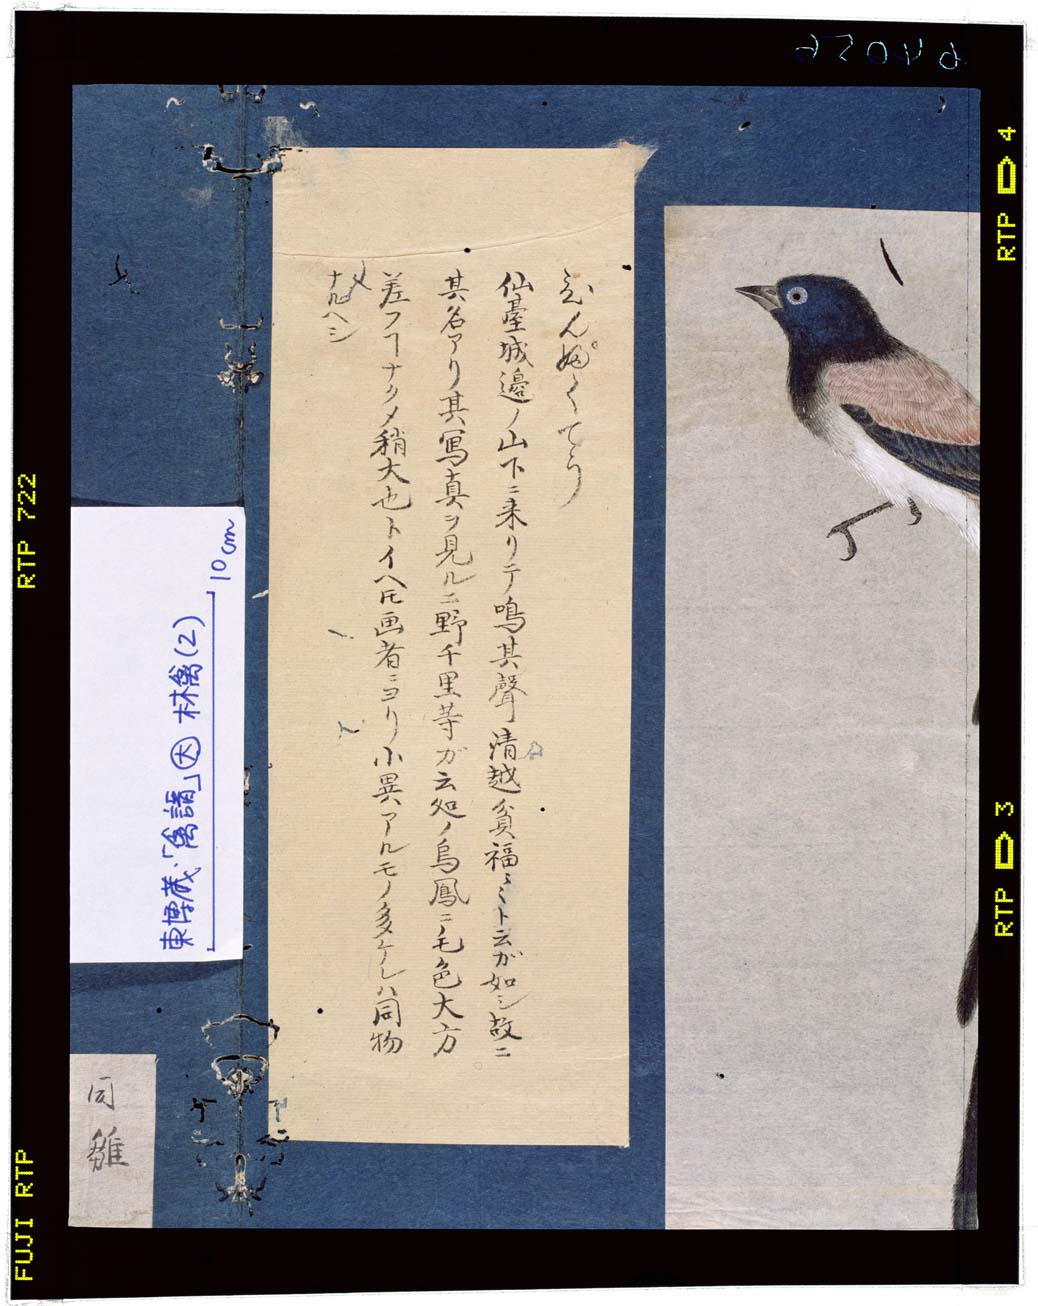 びんぷくてう
仙臺城邉ノ山下ニ来リテ鳴其聲清越貧福〻〻ト云ガ如シ故ニ
其名アリ其寫真ヲ見ルニ野千里芋ガ云処ノ烏鳳ニノ毛色大方
差フヿナクメ稍大也トイヘ𪜈画者ニヨリ小異アルモノ多ケレハ同物
ナルヘシ
東博蔵「禽譜」因 林禽(2)
10cm
同
雛
RTP 4
RTP 3
RTP 722
FUJI RTP